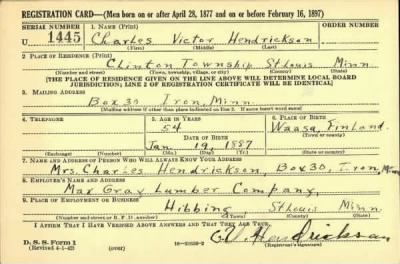 REGISTRATION CARD—(Men born on or after April 28, 1877 and on or before February 16, 1897)
SERIAL NUMBER 1. NAME (Print) ORDER NUMBER
U 1445 Charles Victor Hendrickson
(First) (Middle) (Last)
2. PLACE OF RESIDENCE (Print)
Clinton Township St Louis Minn
(Number and street) (Town, township, village, or city) (County) (State)
[THE PLACE OF RESIDENCE GIVEN ON THE LINE ABOVE WILL DETERMINE LOCAL BOARD
JURISDICTION; LINE 2 OF REGISTRATION CERTIFICATE WILL BE IDENTICAL]
3. MAILING ADDRESS
Box 30 Iron, Minn.
[Mailing address if other than place indicated on line 2. If same insert word same]
4. TELEPHONE 5. AGE IN YEARS 6. PLACE OF BIRTH
54 Waasa, Finland.
DATE OF BIRTH (Town or county)
Jan 19, 1887
(Exchange) (Number) (Mo.) (Day) (Yr.) (State or country)
7. NAME AND ADDRESS OF PERSON WHO WILL ALWAYS KNOW YOUR ADDRESS
Mrs. Charles Hendrickson, Box 30, Iron, Minn
8. EMPLOYER'S NAME AND ADDRESS
Max Gray Lumber Company,
9. PLACE OF EMPLOYMENT OR BUSINESS
Hibbing St Louis Minn
(Number and street or R. F. D. number) (Town) (County) (State)
I AFFIRM THAT I HAVE VERIFIED ABOVE ANSWERS AND THAT THEY ARE TRUE.
D. S. S. Form 1
(Revised 4-1-42) (over) C.V. Hendrickson
(Registrant's signature)